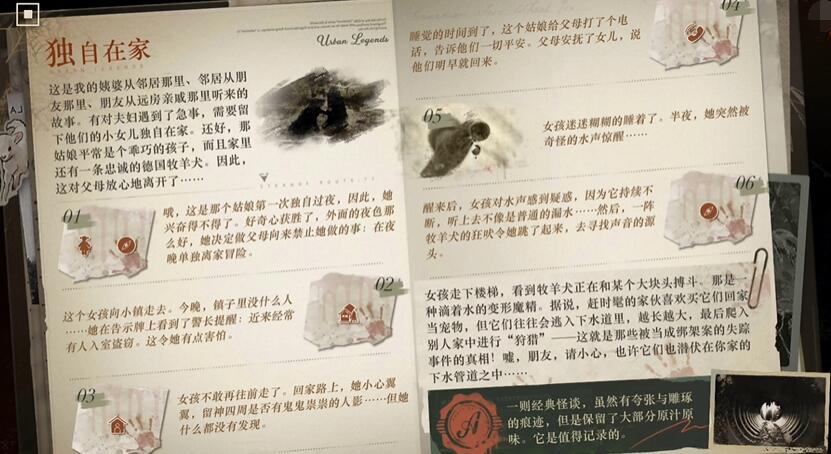 独自在家
Urban Legends
这是我的姨婆从邻居那里、邻居从朋
友那里、朋友从远房亲戚那里听来的
故事。有对夫妇遇到了急事，需要留
下他们的小女儿独自在家。还好，那
姑娘平常是个乖巧的孩子，而且家里
还有一条忠诚的德国牧羊犬。因此，
这对父母放心地离开了……
01
哦，这是那个姑娘第一次独自过夜，因此，她
兴奋得不得了。好奇心获胜了，外面的夜色那
么好，她决定做父母向来禁止她做的事：在夜
晚单独离家冒险。
02
这个女孩向小镇走去。今晚，镇子里没什么人
……她在告示牌上看到了警长提醒：近来经常
有人入室盗窃。这令她有点害怕。
03
女孩不敢再往前走了。回家路上，她小心翼
翼，留神四周是否有鬼鬼祟祟的人影……但她
什么都没有发现。
04
睡觉的时间到了，这个姑娘给父母打了个电
话，告诉他们一切平安。父母安抚了女儿，说
他们明早就回来。
05
女孩迷迷糊糊的睡着了。半夜，她突然被
奇怪的水声惊醒……
06
醒来后，女孩对水声感到疑惑，因为它持续不
断，听上去不像是普通的漏水……然后，一阵
牧羊犬的狂吠令她跳了起来，去寻找声音的源
头。
女孩走下楼梯，看到牧羊犬正在和某个大块头搏斗。那是一
种滴着水的变形魔精。据说，赶时髦的家伙喜欢买它们回家
当宠物，但它们往往会逃入下水道里，越长越大，最后爬入
别人家中进行“狩猎”——这就是那些被当成绑架案的失踪
事件的真相！嘘，朋友，请小心，也许它们也潜伏在你家的
下水管道之中……
A
一则经典怪谈，虽然有夸张与雕琢
的痕迹，但是保留了大部分原汁原
味。它是值得记录的。